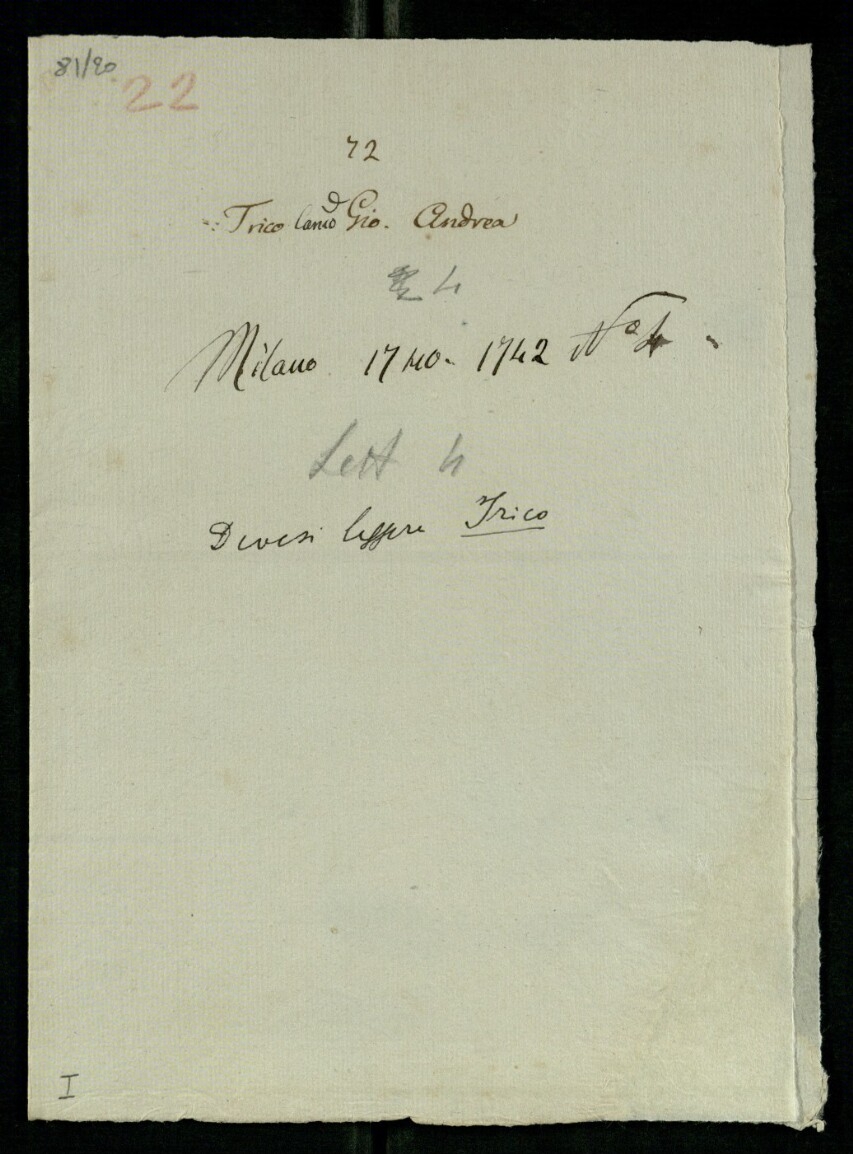 81/20
22
72
Trico Gio. Andrea
4
Milano 1740-1742 N° 4
Lett 4
Devesi leggere Irico
I